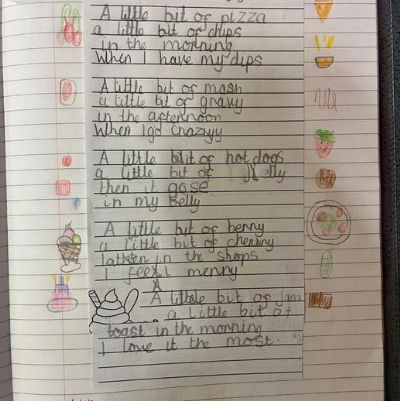 A little bit of pizza
a little bit of chips
in the morning
When I have my dips
A little bit of mash
a little bit of gravy
in the afternoon
When I go Crazyy
A little bit of hot dogs
a little bit of Jelly
then it gose
in my Belly
A little bit of berry
a little bit of cherriny
in the shops
I feel merry
A little bit of jam
a little bit of
toast in the morning
I love it the most.